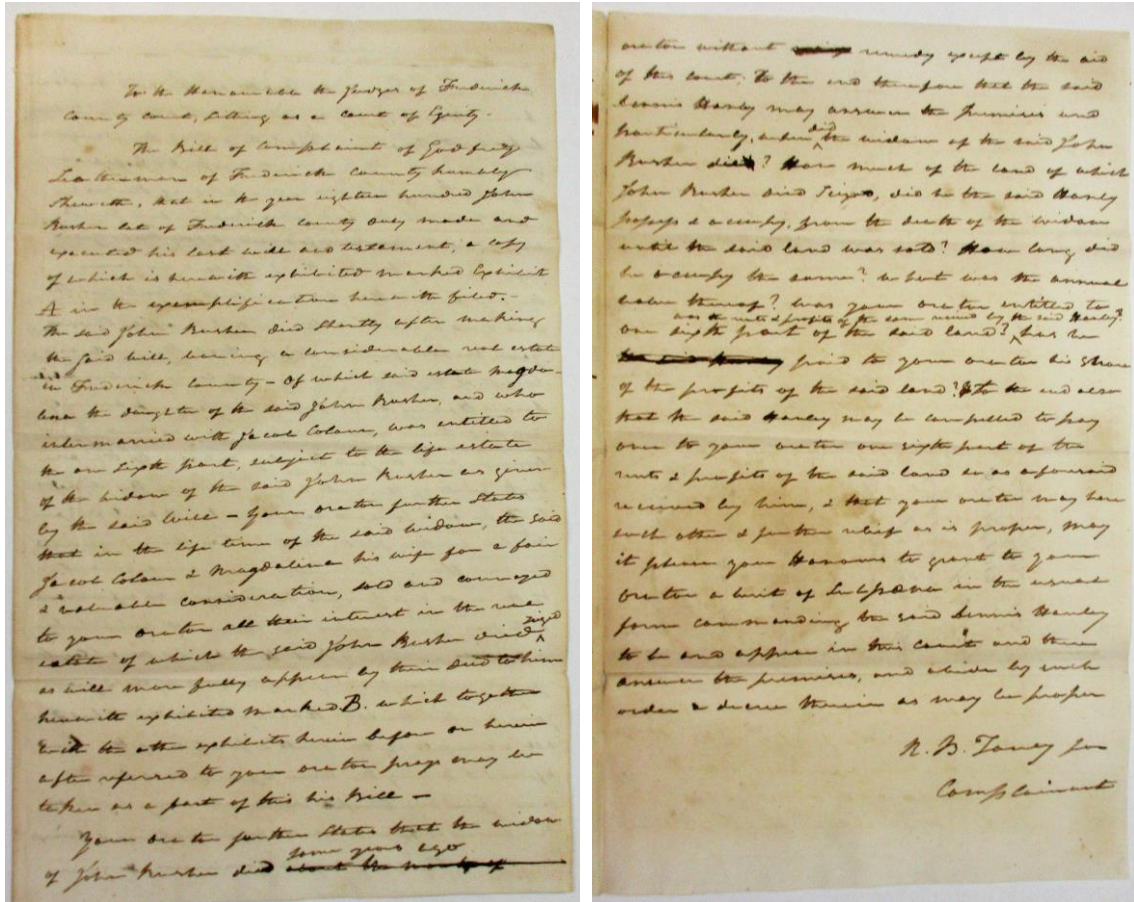 To the Honourable the Judges of Frederick
County Court, sitting as a court of Equity.
The Bill of Complaint of Godfrey
Leatherman of Frederick County humbly
sheweth, that in the year eighteen hundred John
Rusher lat of Frederick County duly made and
executed his last will and testament, a copy
of which is herewith exhibited marked Exhibit
A in the exemplification herewith filed.-
The said John Rusher died shortly after making
the said will, leaving a considerable real estate
in Frederick County - Of which said estate Magda-
lena the daughter of the said John Rusher, and who
intermarried with Jacob Colour, was entitled to
the one sixth part, subject to the life estate
of the widow of the said John Rusher as given
by the said will - Your orator further states
that in the life time of the said widow, the said
Jacob Colour & Magdalena his wife for a fair
& valuable consideration, sold and conveyed
to your orator all their interest in the real
estate of which the said John Rusher died seized
as will more fully appear by their Deed to him
herewith exhibited marked B. which together
with the other exhibits herein before or herein
after referred to your orator prays may be
taken as a part of this his Bill -
Your orator further states that the widow
of John Rusher died some years ago
orator without remedy except by the aid
of this court. To the end therefore that the said
Dennis Hanley may answer the premises and
particularly, when did the widow of the said John
Rusher die? How much of the land of which
John Rusher died seized, did he the said Hanley
possess & occupy, from the death of the widow
until the said land was sold? How long did
he occupy the same? what was the annual
value thereof? was your orator entitled to
one sixth part of the said land? & as the rents & profits of the same received by the said Hanley? has he
paid to your orator his share
of the profits of the said land? To the end also
that the said Hanley may be compelled to pay
over to your orator one sixth part of the
rents & profits of the said land so as aforesaid
received by him, & that your orator may have
such other & further relief as is proper, may
it please your Honours to grant to your
orator a writ of Subpœna in the usual
form commanding the said Dennis Hanley
to be and appear in this court and there
answer the premises, and abide by such
order & decree therein as may be proper
R. B. Taney for
Complainant